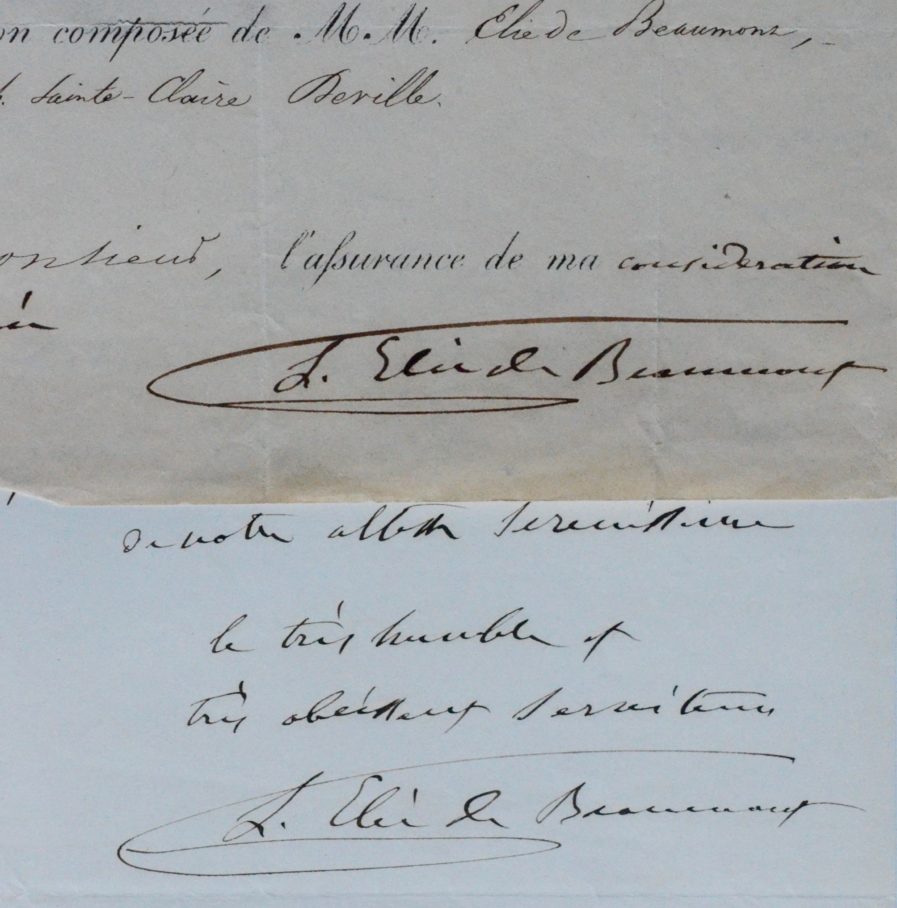 on composée de M.M. Elie de Beaumont,
Sainte-Claire Deville.
onsieur, l'assurance de ma considération
L. Elie de Beaumont
de votre altesse serenissime
le très humble et
très obéissant serviteur
L. Elie de Beaumont